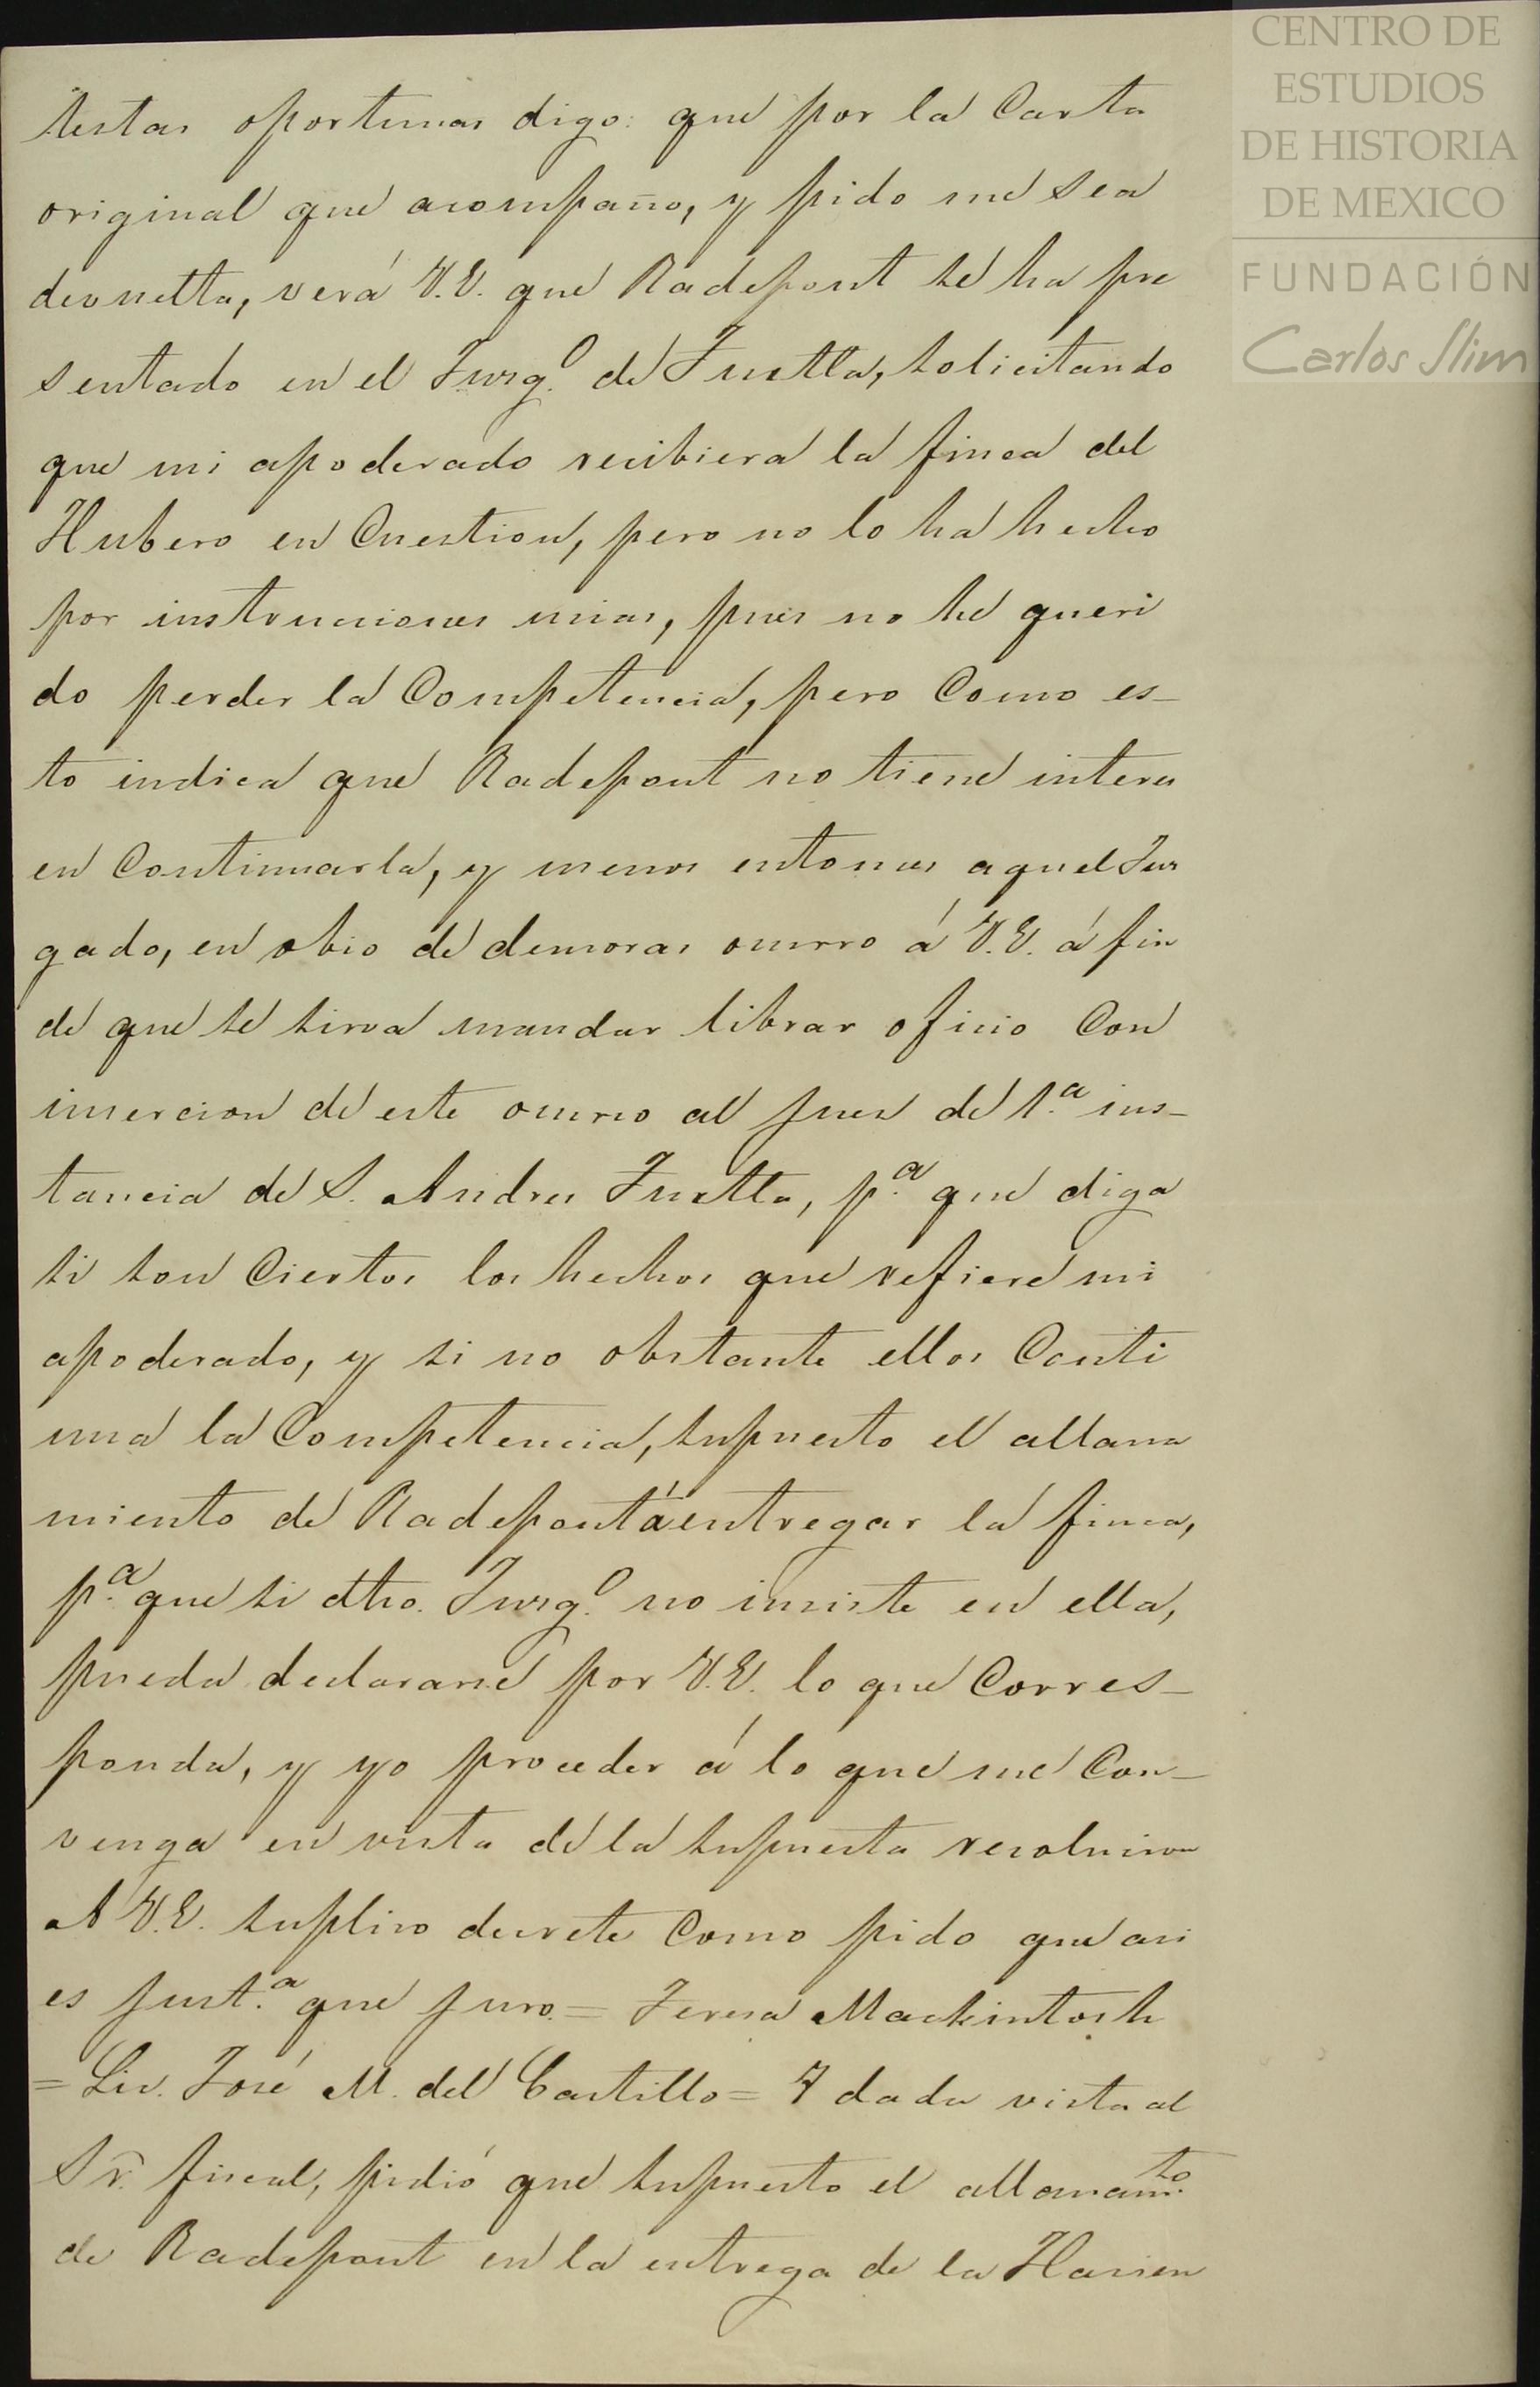 CENTRO DE
ESTUDIOS
DE HISTORIA
DE MEXICO
FUNDACIÓN
Carlos Slim
testas oportunas digo: que por la Carta
original que acompaño, y pido me sea
devuelta, verá V.E. que Radepont se ha pre
sentado en el Juzg.º de Tuxtla, solicitando
que mi apoderado recibiera la finca del
Hubero en Cuestion, pero no lo ha hecho
por instrucciones mias, pues no he queri
do perder la Competencia, pero Como es-
to indica que Radepont no tiene interes
en Continuarla, y menos entonces aquel Juz
gado, en obio de demoras ocurro á V.E. á fin
de que se sirva mandar librar oficio Con
insercion de este ocurso al juez de 1.ª ins-
tancia de S. Andres Tuxtla, p.ª que diga
si son Ciertos los hechos que refiere mi
apoderado, y si no obstante ellos Conti
nua la Competencia, supuesto el allana
miento de Radepont á entregar la finca,
p.ª que si dho. Juzg.º no insiste en ella,
pueda declararse por V.E. lo que Corres-
ponda, y yo proceder á lo que me Con-
venga en vista de la supuesta resolucion
A V.E. suplico decrete Como pido que asi
es just.ª que juro.= Teresa Mackintosh
= Lic. José M. del Castillo = Y dada vista al
Sr. fiscal, pidió que supuesto el allanam.to
de Radepont en la entrega de la Hacien